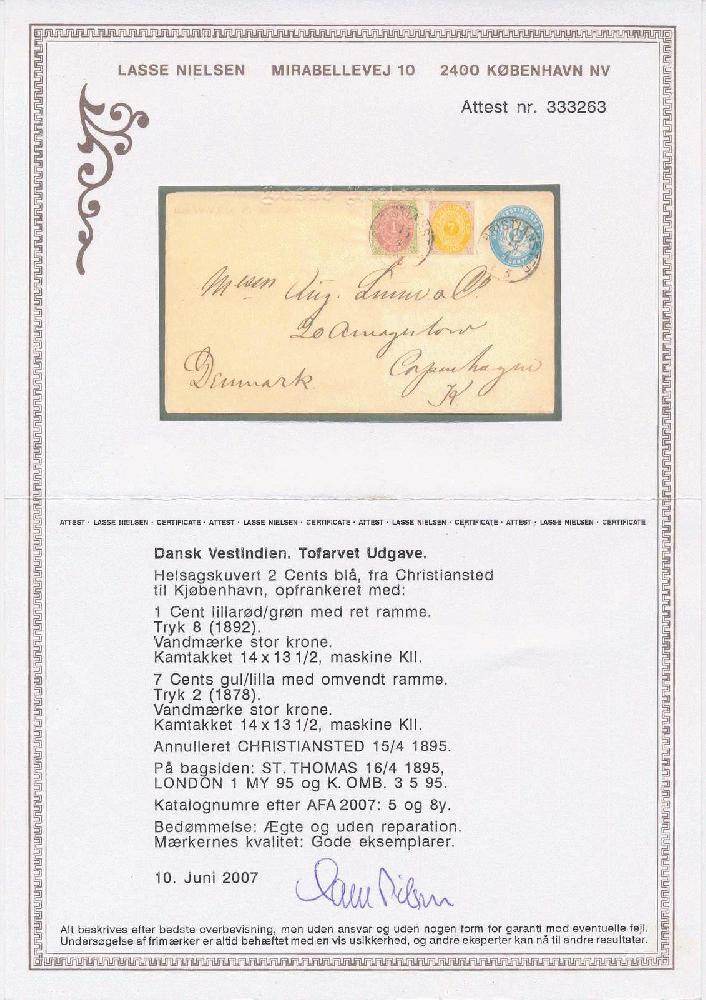 LASSE NIELSEN MIRABELLEVEJ 10 2400 KØBENHAVN NV
Attest nr. 333263
1
7
Messrs Aug. & Co
20 Amagertorv
Copenhagen
K
Denmark
ATTEST · LASSE NIELSEN · CERTIFICATE · ATTEST · LASSE NIELSEN · CERTIFICATE · ATTEST · LASSE NIELSEN · CERTIFICATE · ATTEST · LASSE NIELSEN · CERTIFICATE
Dansk Vestindien. Tofarvet Udgave.
Helsagskuvert 2 Cents blå, fra Christiansted
til Kjøbenhavn, opfrankeret med:
1 Cent lillarød/grøn med ret ramme.
Tryk 8 (1892).
Vandmærke stor krone.
Kamtakket 14 x 13 1/2, maskine KII.
7 Cents gul/lilla med omvendt ramme.
Tryk 2 (1878).
Vandmærke stor krone.
Kamtakket 14 x 13 1/2, maskine KII.
Annulleret CHRISTIANSTED 15/4 1895.
På bagsiden: ST. THOMAS 16/4 1895,
LONDON 1 MY 95 og K. OMB. 3 5 95.
Katalognumre efter AFA 2007: 5 og 8y.
Bedømmelse: Ægte og uden reparation.
Mærkernes kvalitet: Gode eksemplarer.
10. Juni 2007
Lasse Nielsen
Alt beskrives efter bedste overbevisning, men uden ansvar og uden nogen form for garanti mod eventuelle fejl.
Undersøgelse af frimærker er altid behæftet med en vis usikkerhed, og andre eksperter kan nå til andre resultater.